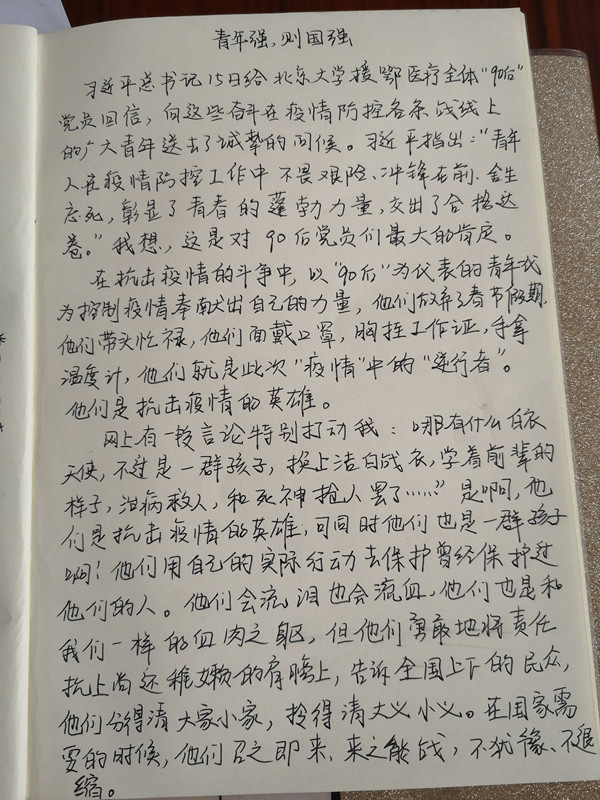 青年强,则国强
习近平总书记15日给北京大学援鄂医疗全体"90后"
党员回信,向这些奋斗在疫情防控各条战线上
的广大青年送去了诚挚的问候。习近平指出:"青年
人在疫情防控工作中不畏艰险、冲锋在前、舍生
忘死,彰显了青春的蓬勃力量,交出了合格达
卷。"我想,这是对90后党员们最大的肯定。
在抗击疫情的斗争中,以"90后"为代表的青年代
为控制疫情奉献出自己的力量,他们放弃了春节假期,
他们带头忙禄,他们面戴口罩,胸挂工作证,手拿
温度计,他们就是此次"疫情"中的"逆行者"。
他们是抗击疫情的英雄。
网上有一段言论特别打动我:"哪有什么白衣
天使,不过是一群孩子,换上洁白战衣,学着前辈的
样子,治病救人,和死神抢人罢了……"是啊,他
们是抗击疫情的英雄,可同时他们也是一群孩子
啊!他们用自己的实际行动去保护曾经保护过
他们的人。他们会流泪也会流血,他们也是和
我们一样的血肉之躯,但他们勇敢地将责任
抗上尚还稚嫩的肩膀上,告诉全国上下的民众,
他们分得清大家小家,拎得清大义小义。在国家需
要的时候,他们召之即来,来之能战,不犹豫、不退
缩。